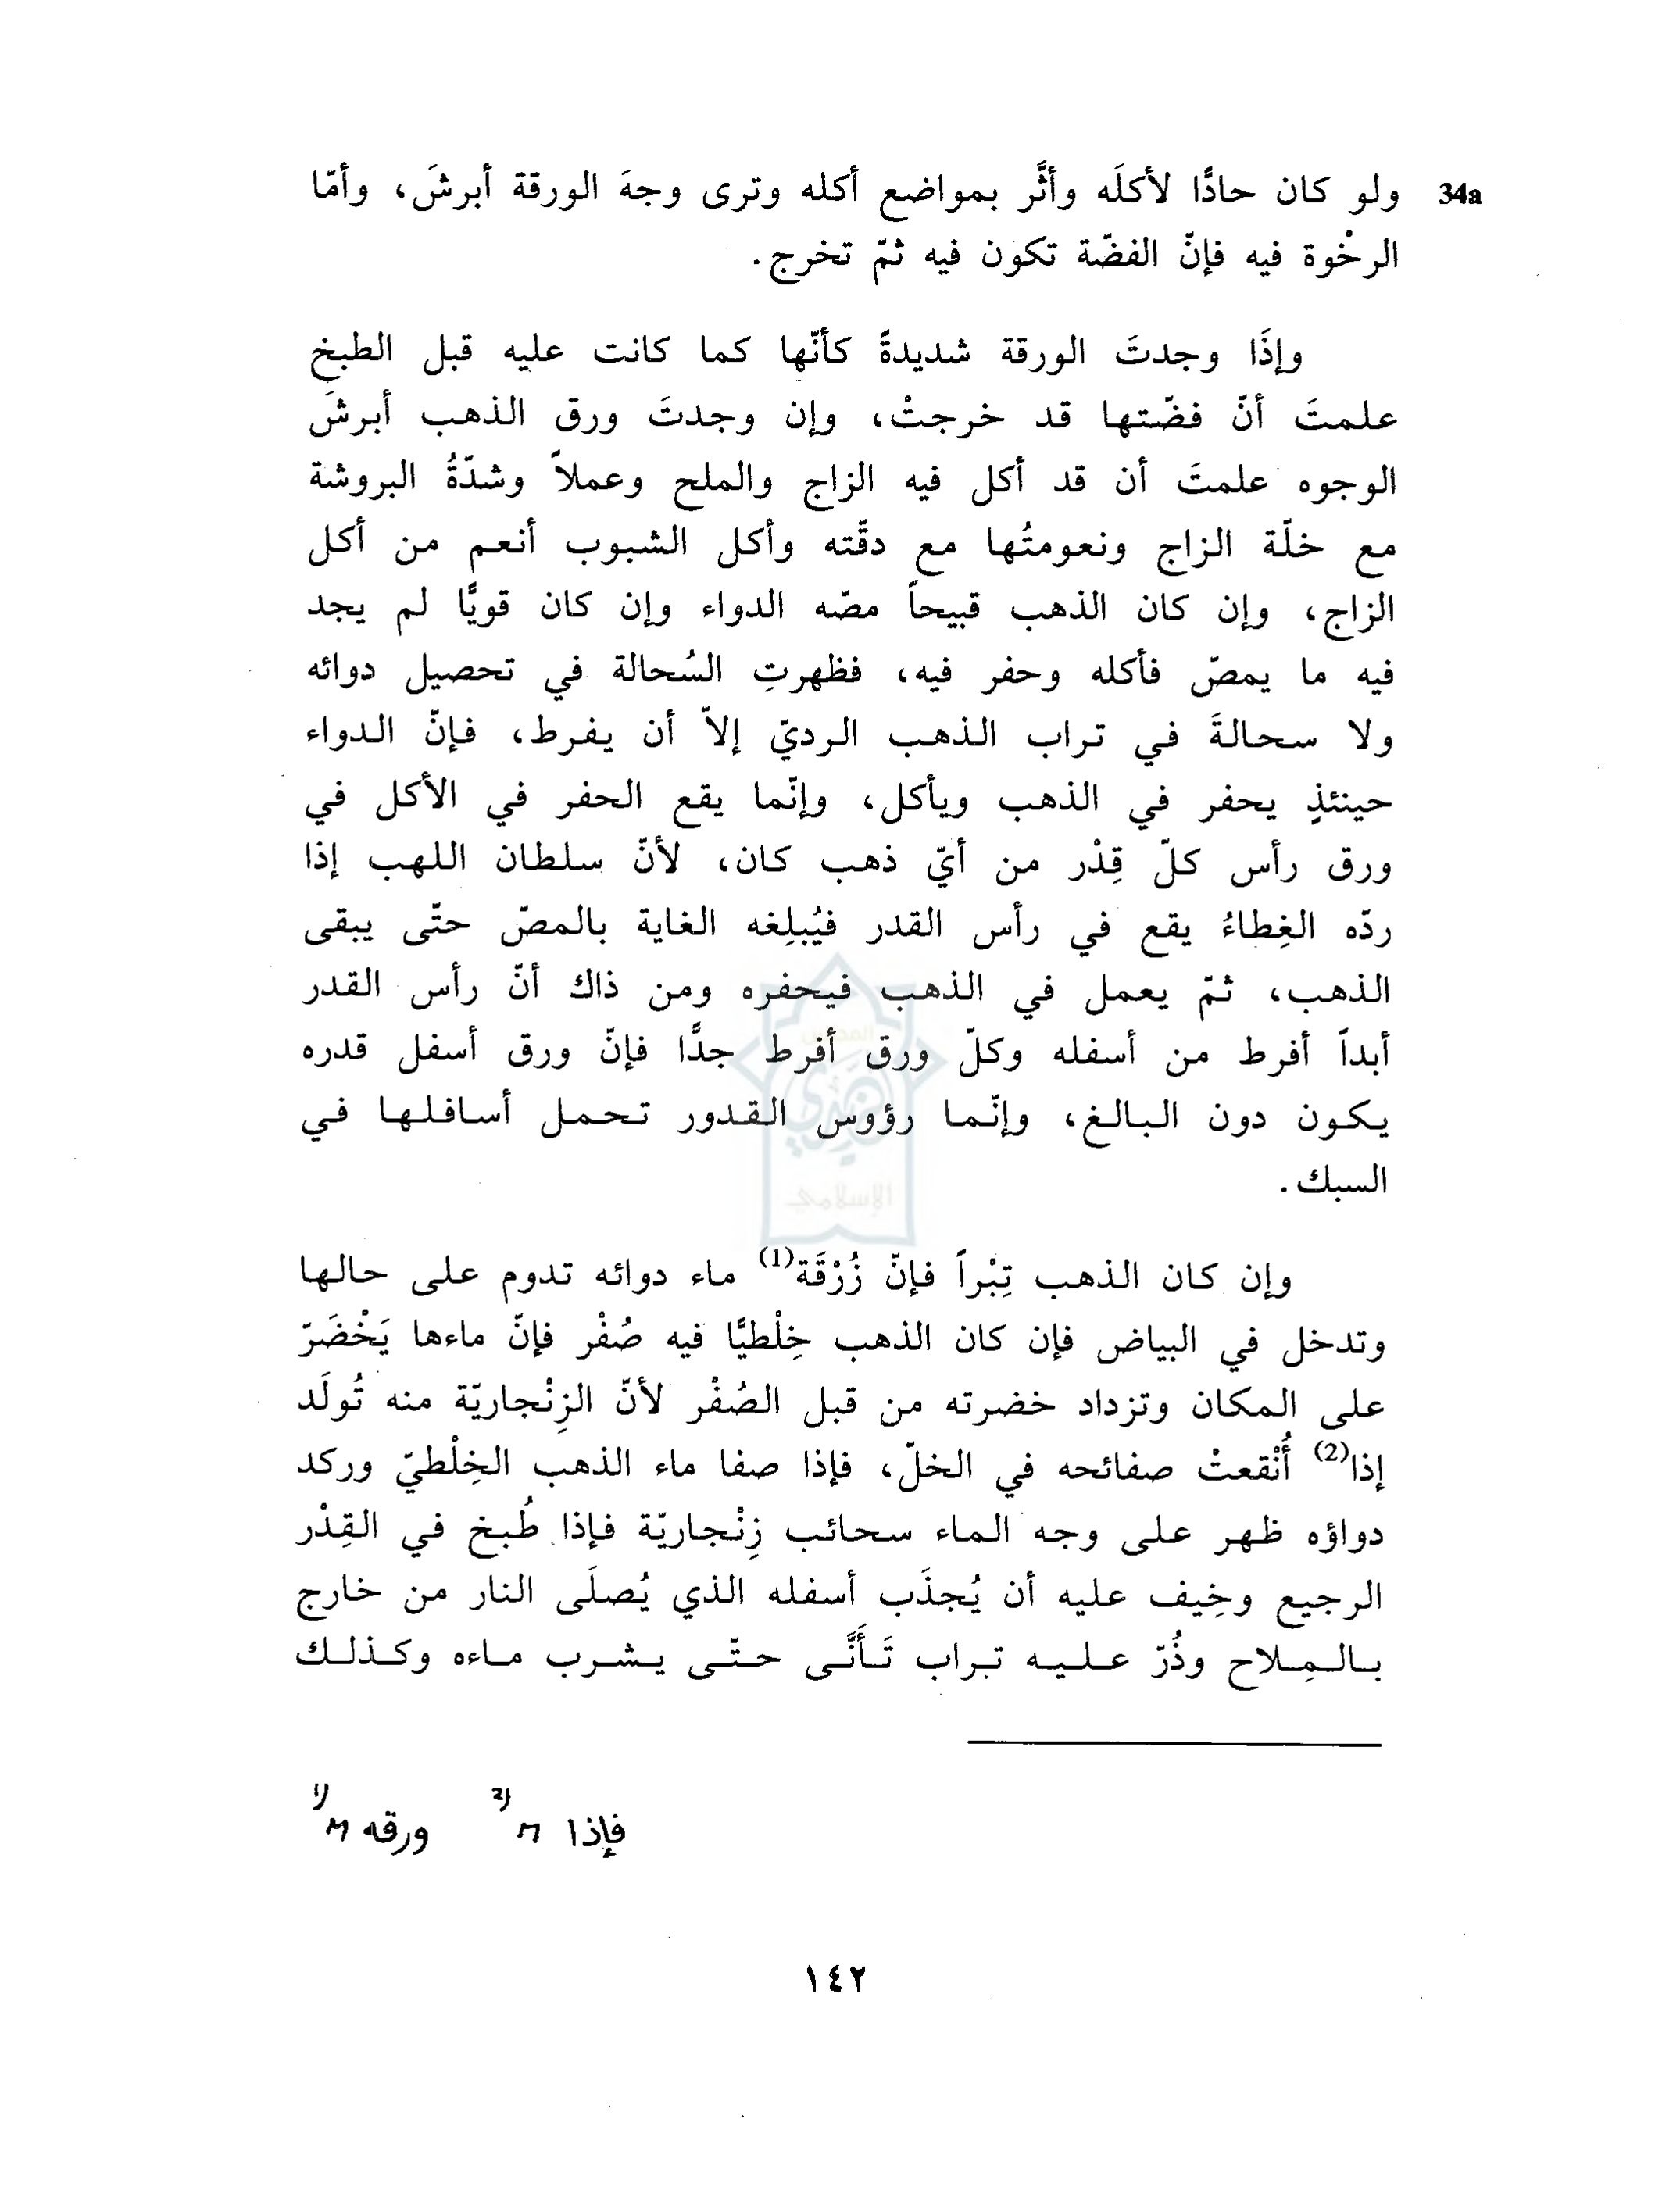 ولو كان حادًّا لأكلَه وأثَّر بمواضع أكله وترى وجهَ الورقة أبرشَ، وأمّا 34a
الرخْوة فيه فإنّ الفضّة تكون فيه ثمّ تخرج.
وإذَا وجدتَ الورقة شديدةً كأنّها كما كانت عليه قبل الطبخ
علمتَ أنّ فضّتها قد خرجتْ، وإن وجدتَ ورق الذهب أبرشَ
الوجوه علمتَ أن قد أكل فيه الزاج والملح وعملاً وشدّةُ البروشة
مع خلّة الزاج ونعومتُها مع دقّته وأكل الشبوب أنعم من أكل
الزاج، وإن كان الذهب قبيحاً مصّه الدواء وإن كان قويًّا لم يجد
فيه ما يمصّ فأكله وحفر فيه، فظهرتِ السُحالة في تحصيل دوائه
ولا سحالةَ في تراب الذهب الرديّ إلاّ أن يفرط، فإنّ الدواء
حينئذٍ يحفر في الذهب ويأكل، وإنّما يقع الحفر في الأكل في
ورق رأس كلّ قِدْر من أيّ ذهب كان، لأنّ سلطان اللهب إذا
ردّه الغِطاءُ يقع في رأس القدر فيُبلِغه الغاية بالمصّ حتّى يبقى
الذهب، ثمّ يعمل في الذهب فيحفره ومن ذاك أنّ رأس القدر
أبداً أفرط من أسفله وكلّ ورق أفرط جدًّا فإنّ ورق أسفل قدره
يكون دون البالغ، وإنّما رؤوس القدور تحمل أسافلها في
السبك.
وإن كان الذهب تِبْراً فإنّ زُرْقَة(1) ماء دوائه تدوم على حالها
وتدخل في البياض فإن كان الذهب خِلْطيًّا فيه صُفْر فإنّ ماءها يَخْضَرّ
على المكان وتزداد خضرته من قبل الصُفْر لأنّ الزِنْجاريّة منه تُولَد
إذا(2) أُنْقعتْ صفائحه في الخلّ، فإذا صفا ماء الذهب الخِلْطيّ وركد
دواؤه ظهر على وجه الماء سحائب زِنْجاريّة فإذا طُبخ في القِدْر
الرجيع وخِيف عليه أن يُجذَب أسفله الذي يُصلَى النار من خارج
بالمِلاح وذُرّ عليه تراب تَأَنَّى حتّى يشرب ماءه وكذلك
1) M ورقه 2) M فإذا
١٤٢
المهتدي
الإسلامي